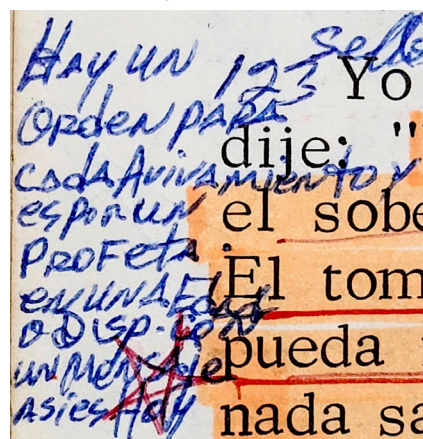 Hay un 123 Sello
Orden para
cada Avivamiento y
es por un
Profeta.
en una Edad
o Disp. con
un Mensaje
Asi es Hoy
Yo
dije: "
el sobe
El tom
pueda
nada sa